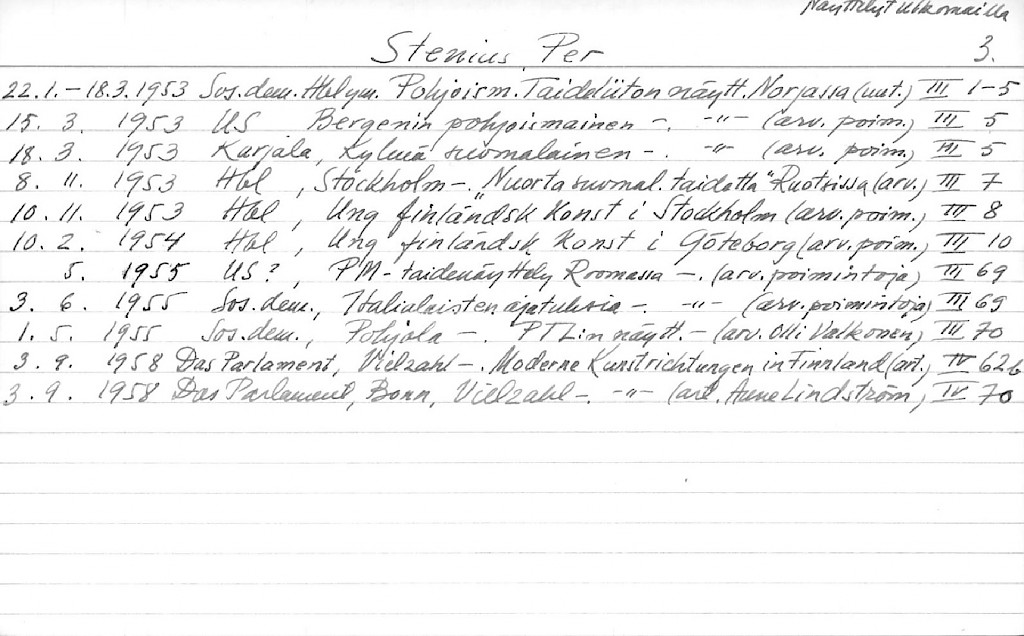 Näyttelyt ulkomailla
Stenius, Per 3.
22.1.-18.3.1953 Sos.dem. Hbl ym. Pohjoism. Taideliiton näytt. Norjassa (uut.) III 1-5
15. 3. 1953 US Bergenin pohjoismainen -. -"- (arv. poim.) III 5
18. 3. 1953 Karjala, Kylmä suomalainen -. -"- (arv. poim.) III 5
8. 11. 1953 Hbl, Stockholm -. "Nuorta suomal. taidetta" Ruotsissa (arv.) III 7
10. 11. 1953 Hbl, Ung finländsk Konst i Stockholm (arv. poim.) III 8
10. 2. 1954 Hbl, Ung finländsk Konst i Göteborg (arv. poim.) III 10
5. 1955 US?, PM-taidenäyttely Roomassa -. (arv. poimintoja) III 69
3. 6. 1955 Sos.dem., Italialaisten ajatuksia -. -"- (arv. poimintoja) III 69
1. 5. 1955 Sos.dem., Pohjola - PTL:n näytt. - (arv. Olli Valkonen) III 70
3. 9. 1958 Das Parlament, Vielzahl -. Moderne Kunstrichtungen in Finnland (art.) IV 62b
3. 9. 1958 Das Parlament, Bonn, Vielzahl -. -"- (art. Aune Lindström) IV 70